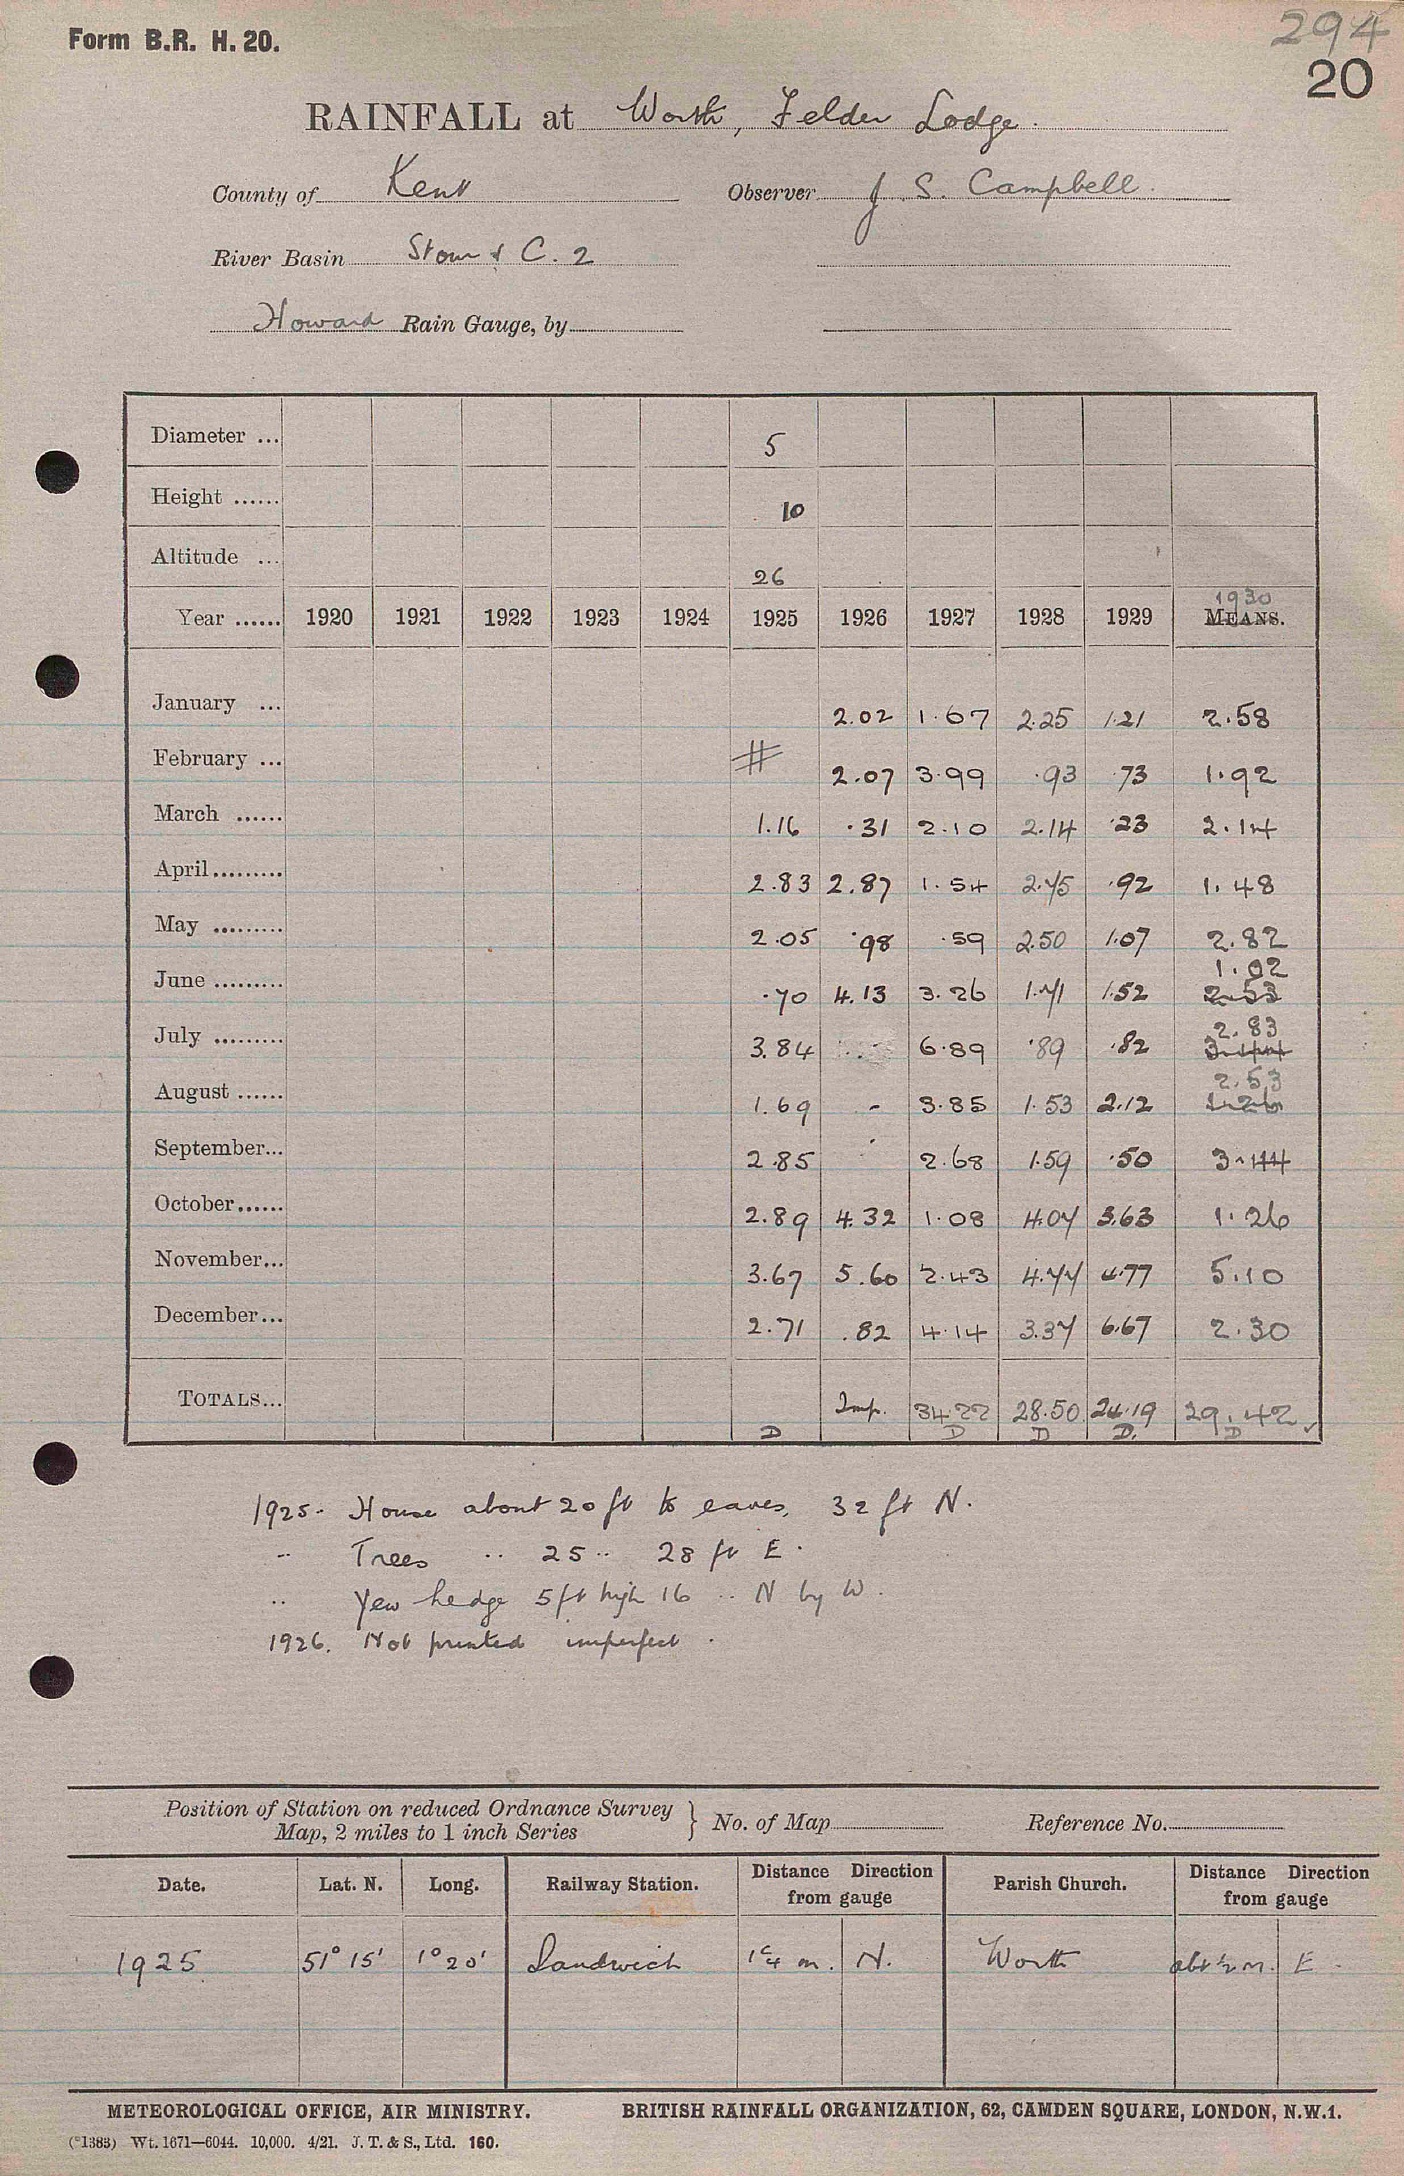 294
Form B.R. H. 20.
20
RAINFALL at Worth, Felder Lodge.
County of Kent Observer J. S. Campbell.
River Basin Stour & C. 2
Howard Rain Gauge, by
Diameter ... 5
Height ...... 10
Altitude ... 26
1930
Year ...... 1920 1921 1922 1923 1924 1925 1926 1927 1928 1929 MEANS.
January ... 2.02 1.67 2.25 1.21 2.58
February ... # 2.07 3.99 .93 .73 1.92
March ...... 1.16 .31 2.10 2.14 .23 2.14
April ......... 2.83 2.87 1.54 2.75 .92 1.48
May ......... 2.05 .98 .59 2.50 1.07 2.82
1.02
June ......... .70 4.13 3.26 1.71 1.52 2.53
2.83
July ......... 3.84 6.89 .89 .82 3.44
2.53
August ...... 1.69 - 3.85 1.53 2.12 1.26
September... 2.85 2.68 1.59 .50 3.44
October...... 2.89 4.32 1.08 4.07 3.63 1.26
November... 3.67 5.60 2.43 4.77 4.77 5.10
December... 2.71 .82 4.14 3.37 6.67 2.30
TOTALS... Imp. 34.22 28.50 24.19 29.42 ✓
D D D D. D
1925. House about 20 ft to eaves, 32 ft N.
" Trees " 25 " 28 ft E.
" Yew hedge 5 ft high 16 " N by W.
1926. Not printed imperfect.
Position of Station on reduced Ordnance Survey
Map, 2 miles to 1 inch Series } No. of Map Reference No.
Date. Lat. N. Long. Railway Station. Distance Direction from gauge Parish Church. Distance Direction from gauge
1925 51° 15' 1° 20' Sandwich 1¼ m. N. Worth abt ½ m. E.
METEOROLOGICAL OFFICE, AIR MINISTRY. BRITISH RAINFALL ORGANIZATION, 62, CAMDEN SQUARE, LONDON, N.W.1.
(*1383) Wt. 1671—6044. 10,000. 4/21. J. T. & S., Ltd. 160.